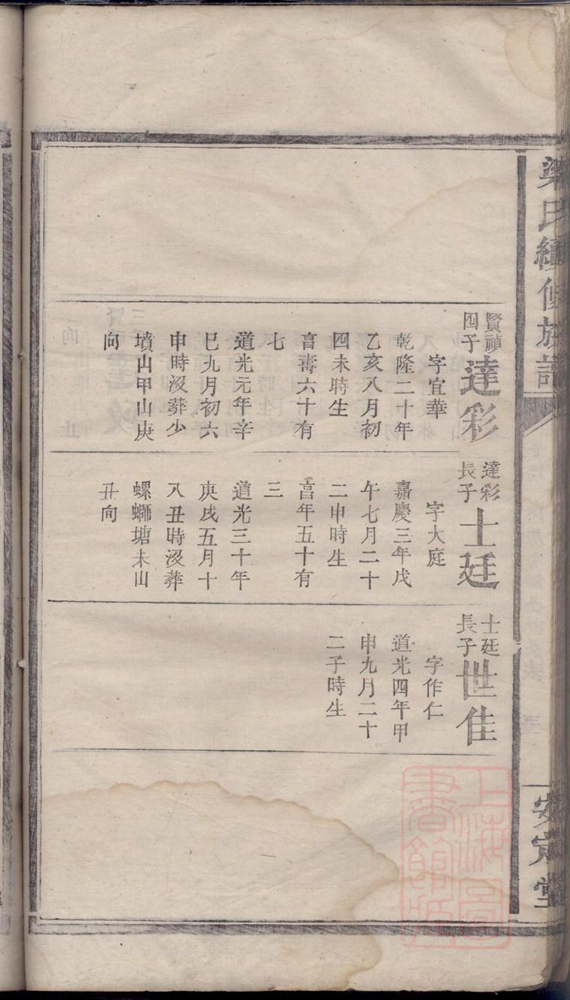 梁氏續修族譜
安定堂
賢禎
四子
達彩
字宜華
乾隆二十年
乙亥八月初
四未時生
享壽六十有
七
道光元年辛
巳九月初六
申時沒葬少
墳山甲山庚
向
達彩
長子
士廷
字大庭
嘉慶三年戊
午七月二十
二申時生
享年五十有
三
道光三十年
庚戌五月十
八丑時沒葬
螺螄塘未山
丑向
士廷
長子
世佳
字作仁
道光四年甲
申九月二十
二子時生
上海圖
書館藏